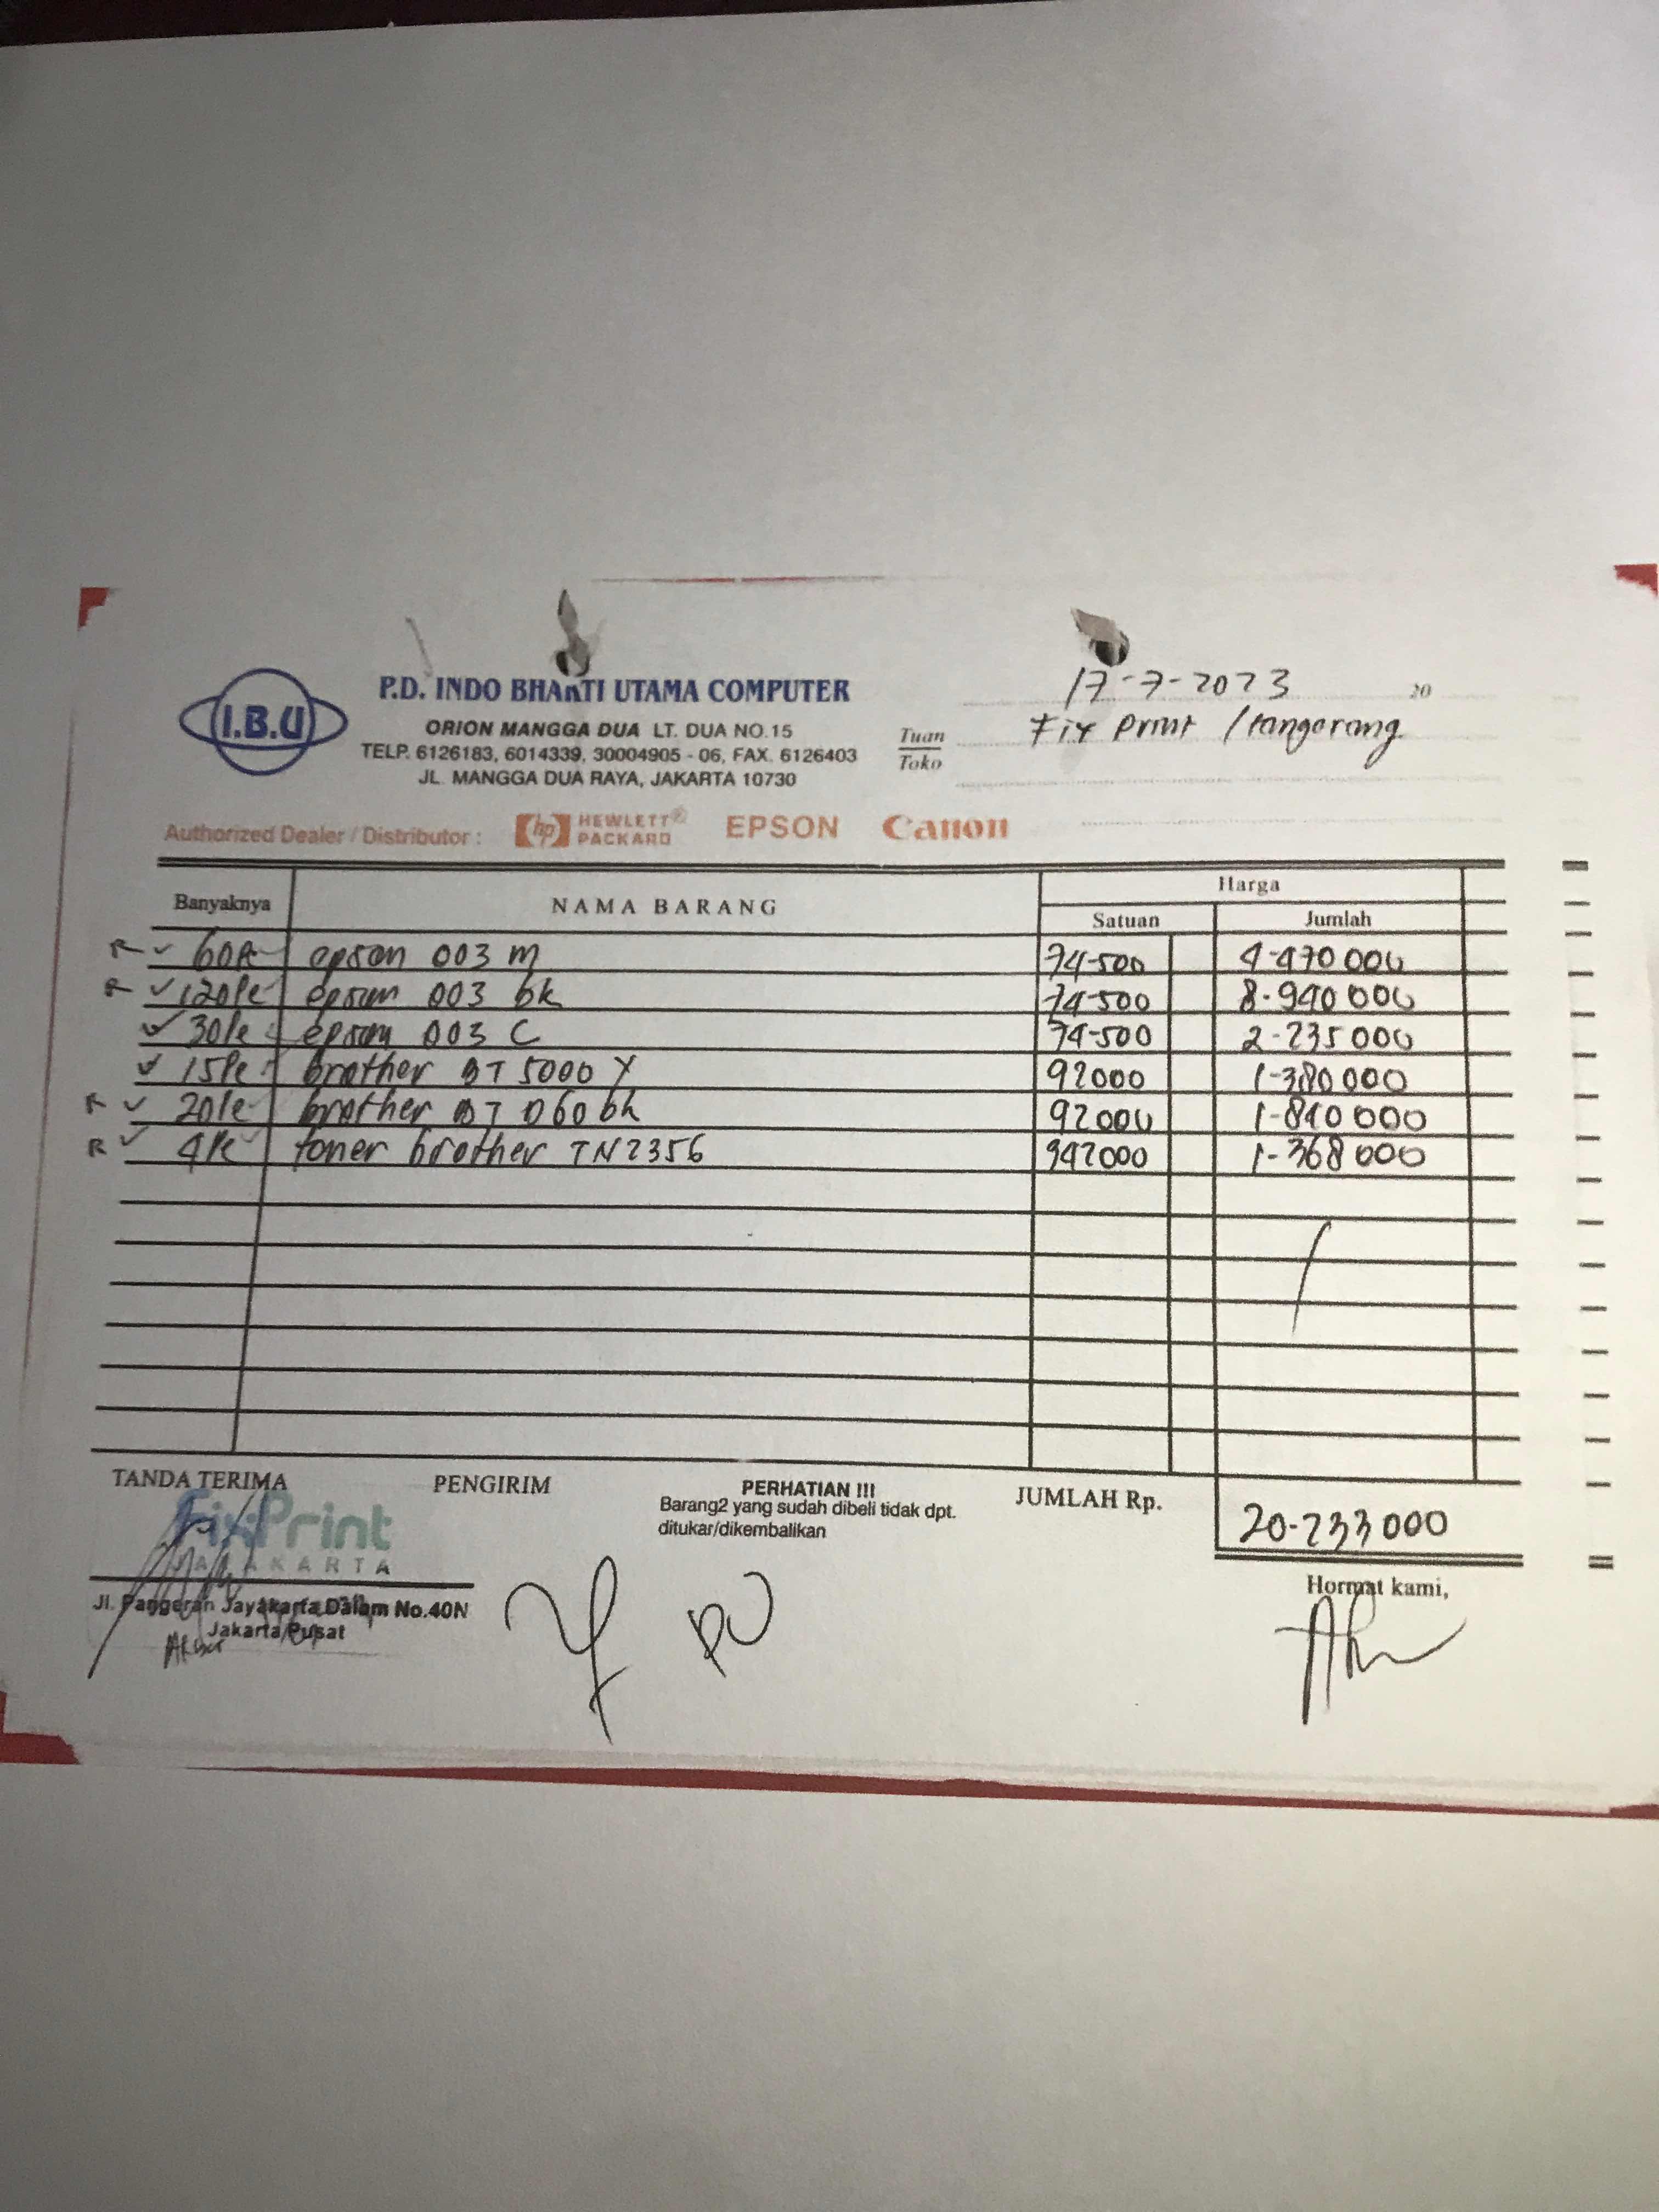 I.B.U
P.D. INDO BHAKTI UTAMA COMPUTER
ORION MANGGA DUA LT. DUA NO.15
TELP. 6126183, 6014339, 30004905 - 06, FAX. 6126403
JL. MANGGA DUA RAYA, JAKARTA 10730
17-7-2023 20
Tuan
Toko
Fix Print / tangerang
Authorized Dealer / Distributor : hp HEWLETT® PACKARD EPSON Canon
Banyaknya NAMA BARANG Harga
Satuan Jumlah
R ✓ 60 epson 003 m 74-500 4-470 000
R ✓ 120 epson 003 bk 74-500 8-940 000
✓ 30 epson 003 C 74-500 2-235 000
✓ 15 brother BT 5000 Y 92000 1-380 000
R ✓ 20 brother BT D60 bk 92000 1-840 000
R ✓ 4 toner brother TN2356 342000 1-368 000
TANDA TERIMA PENGIRIM PERHATIAN !!! JUMLAH Rp. 20-233 000
Barang2 yang sudah dibeli tidak dpt.
ditukar/dikembalikan
FixPrint
JAYAKARTA
Jl. Pangeran Jayakarta Dalam No.40N
Jakarta Pusat
Akbar
Hormat kami,